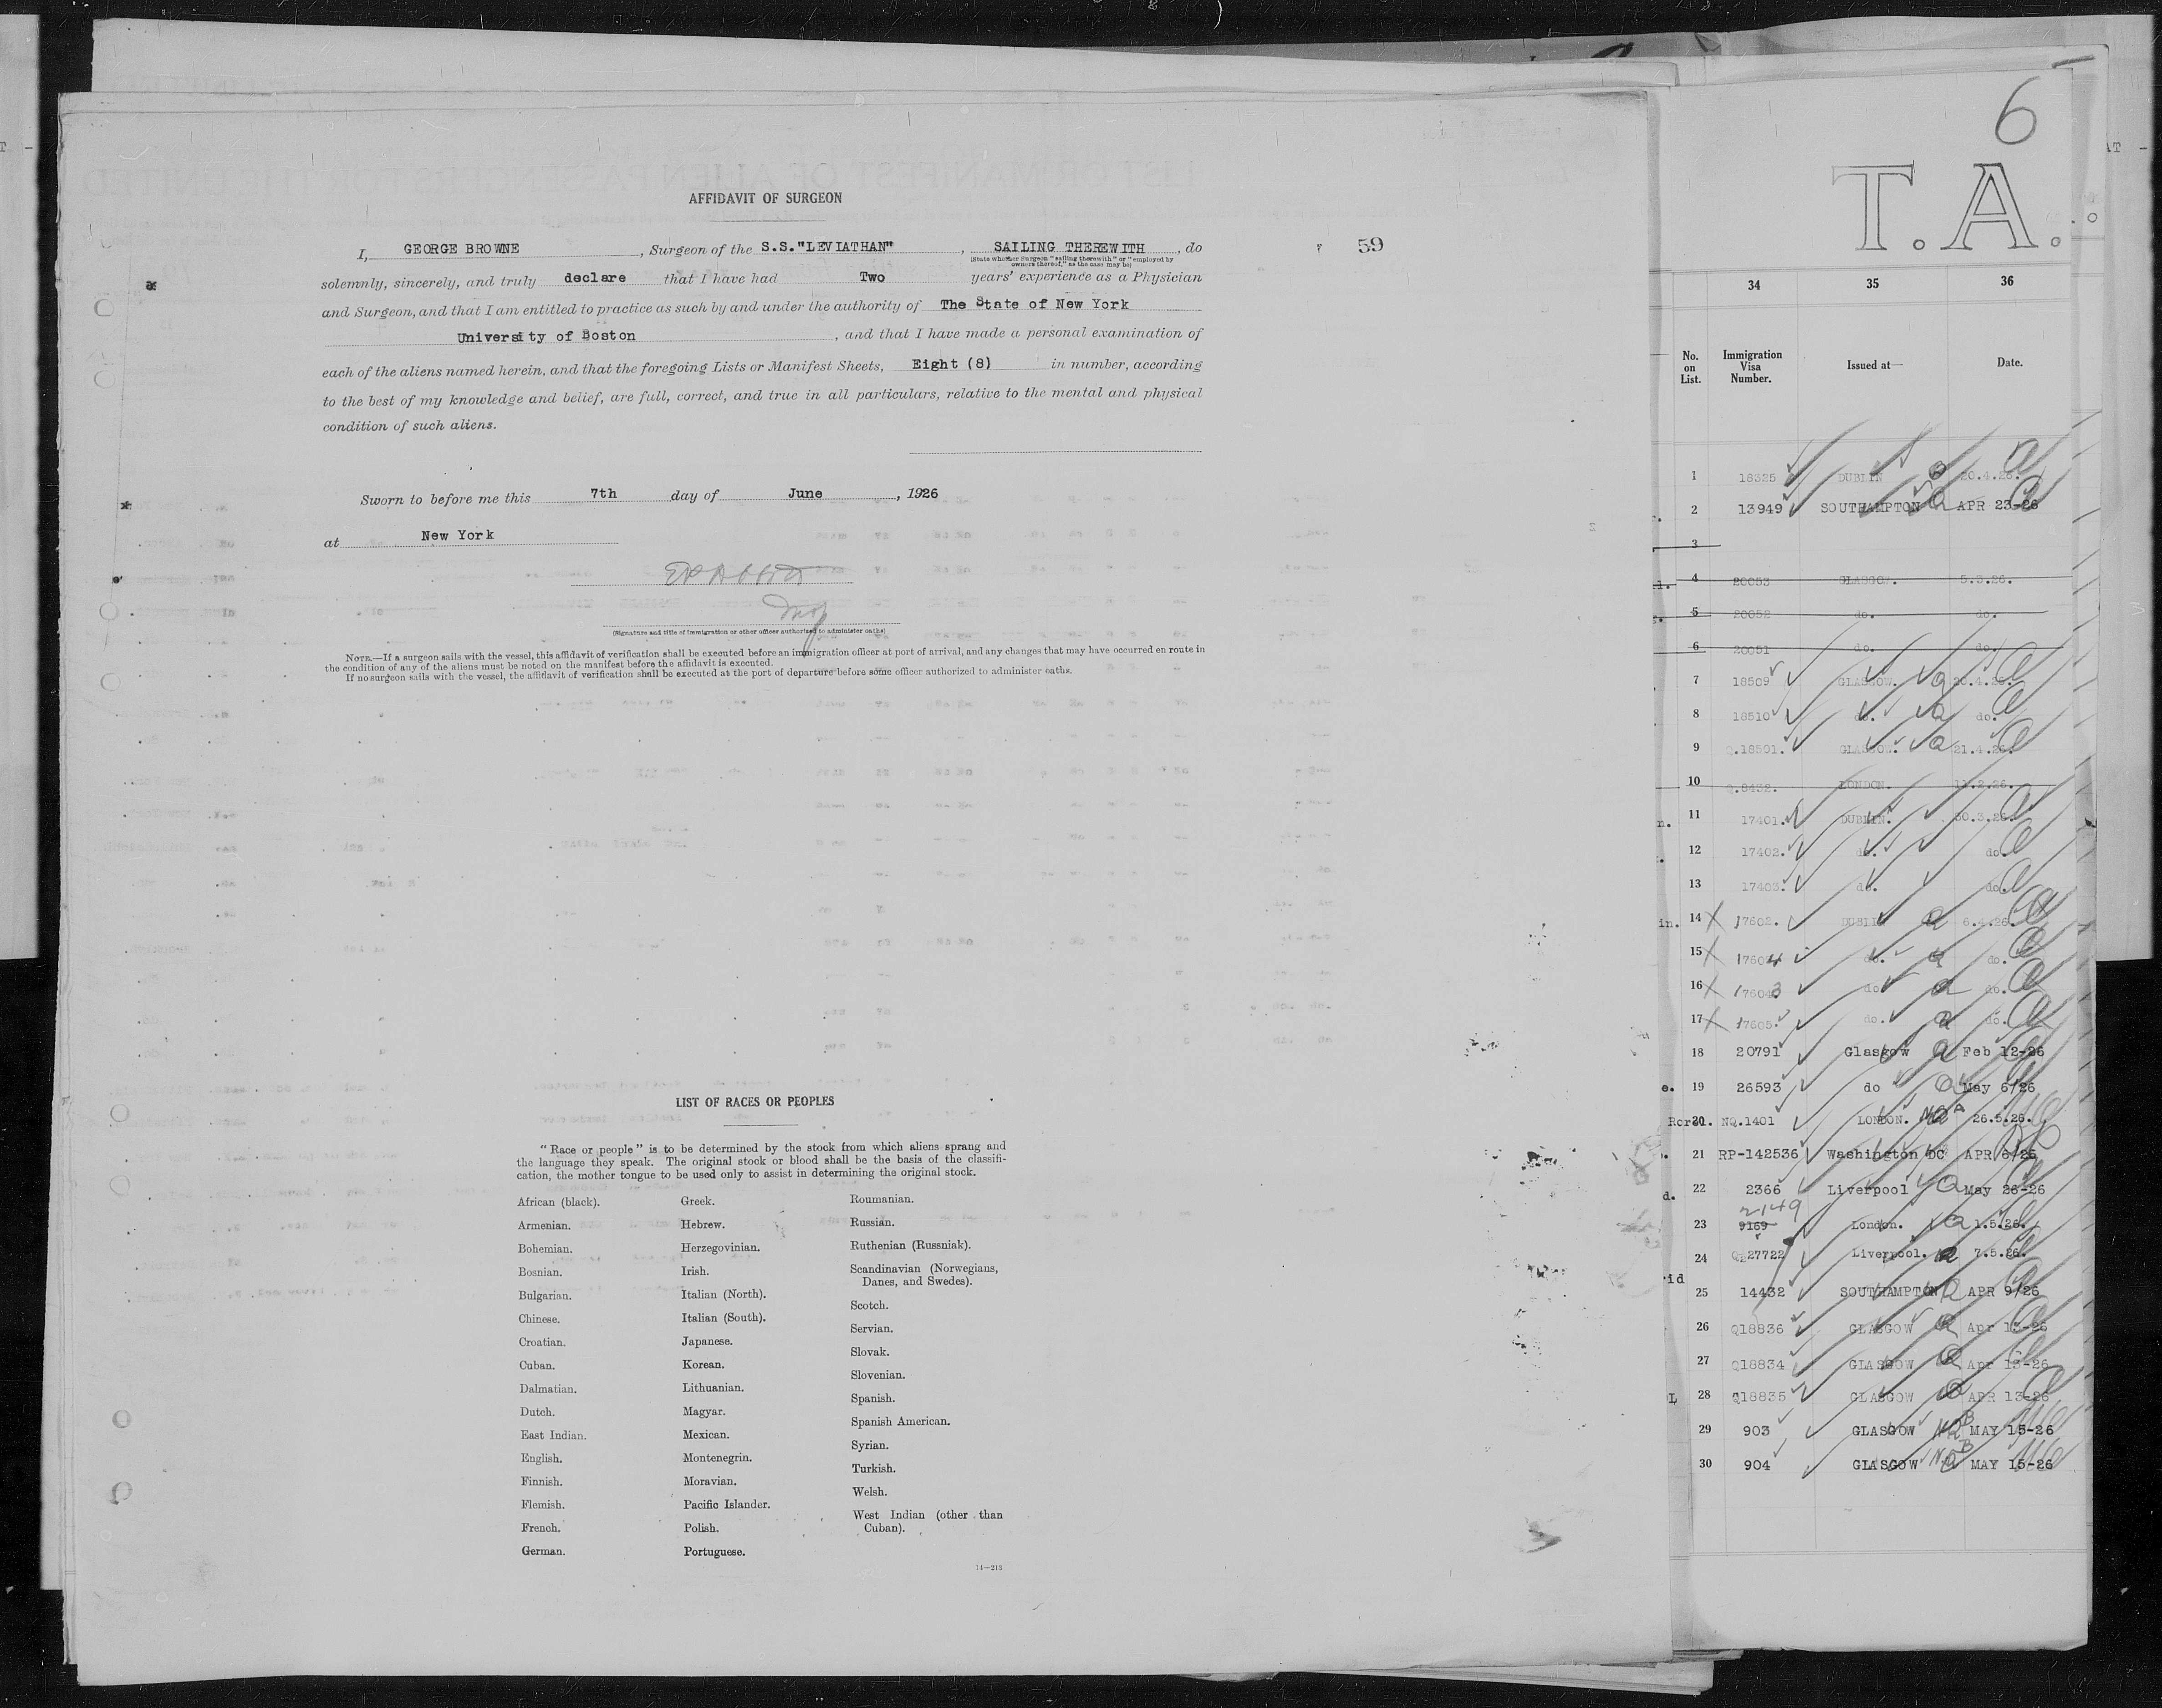 AFFIDAVIT OF SURGEON
I, GEORGE BROWNE, Surgeon of the S.S."LEVIATHAN", SAILING THEREWITH, do
(State whether Surgeon "sailing therewith" or "employed by
owners thereof," as the case may be)
solemnly, sincerely, and truly declare that I have had Two years' experience as a Physician
and Surgeon, and that I am entitled to practice as such by and under the authority of The State of New York
University of Boston, and that I have made a personal examination of
each of the aliens named herein, and that the foregoing Lists or Manifest Sheets, Eight (8) in number, according
to the best of my knowledge and belief, are full, correct, and true in all particulars, relative to the mental and physical
condition of such aliens.
Sworn to before me this 7th day of June, 1926
at New York
(Signature and title of immigration or other officer authorized to administer oaths)
NOTE.—If a surgeon sails with the vessel, this affidavit of verification shall be executed before an immigration officer at port of arrival, and any changes that may have occurred en route in
the condition of any of the aliens must be noted on the manifest before the affidavit is executed.
If no surgeon sails with the vessel, the affidavit of verification shall be executed at the port of departure before some officer authorized to administer oaths.
59
LIST OF RACES OR PEOPLES
"Race or people" is to be determined by the stock from which aliens sprang and
the language they speak. The original stock or blood shall be the basis of the classifi-
cation, the mother tongue to be used only to assist in determining the original stock.
African (black).
Armenian.
Bohemian.
Bosnian.
Bulgarian.
Chinese.
Croatian.
Cuban.
Dalmatian.
Dutch.
East Indian.
English.
Finnish.
Flemish.
French.
German.
Greek.
Hebrew.
Herzegovinian.
Irish.
Italian (North).
Italian (South).
Japanese.
Korean.
Lithuanian.
Magyar.
Mexican.
Montenegrin.
Moravian.
Pacific Islander.
Polish.
Portuguese.
Roumanian.
Russian.
Ruthenian (Russniak).
Scandinavian (Norwegians,
Danes, and Swedes).
Scotch.
Servian.
Slovak.
Slovenian.
Spanish.
Spanish American.
Syrian.
Turkish.
Welsh.
West Indian (other than
Cuban).
14—213
6
T.A.
34 35 36
No. on List. Immigration Visa Number. Issued at— Date.
1 18525 DUBLIN 20.4.26.
2 13949 SOUTHAMPTON APR 23-26
3
4 20053 GLASGOW. 5.3.26.
5 20052 do. do.
6 20051 do. do.
7 18509 GLASGOW. 20.4.26.
8 18510 do. do.
9 Q.18501. GLASGOW. 21.4.26.
10 Q.9432. LONDON. 11.2.26.
11 17401. DUBLIN. 30.3.26.
12 17402. do. do.
13 17403. do. do.
14 X 17602. DUBLIN 6.4.26.
15 X 17604 do. do.
16 X 17603 do. do.
17 X 17605. do. do.
18 20791 Glasgow Feb 12-26
19 26593 do May 6/26
20 NQ.1401 LONDON. 26.5.26.
21 RP-142536 Washington DC APR 6/26
22 2366 Liverpool May 26-26
2149
23 9169 London. 1.5.26.
24 Q227722 Liverpool. 7.5.26.
25 14432 SOUTHAMPTON APR 9/26
26 Q18836 GLASGOW Apr 13-26
27 Q18834 GLASGOW Apr 13-26
28 Q18835 GLASGOW APR 13-26
29 903 GLASGOW MAY 15-26
30 904 GLASGOW MAY 15-26